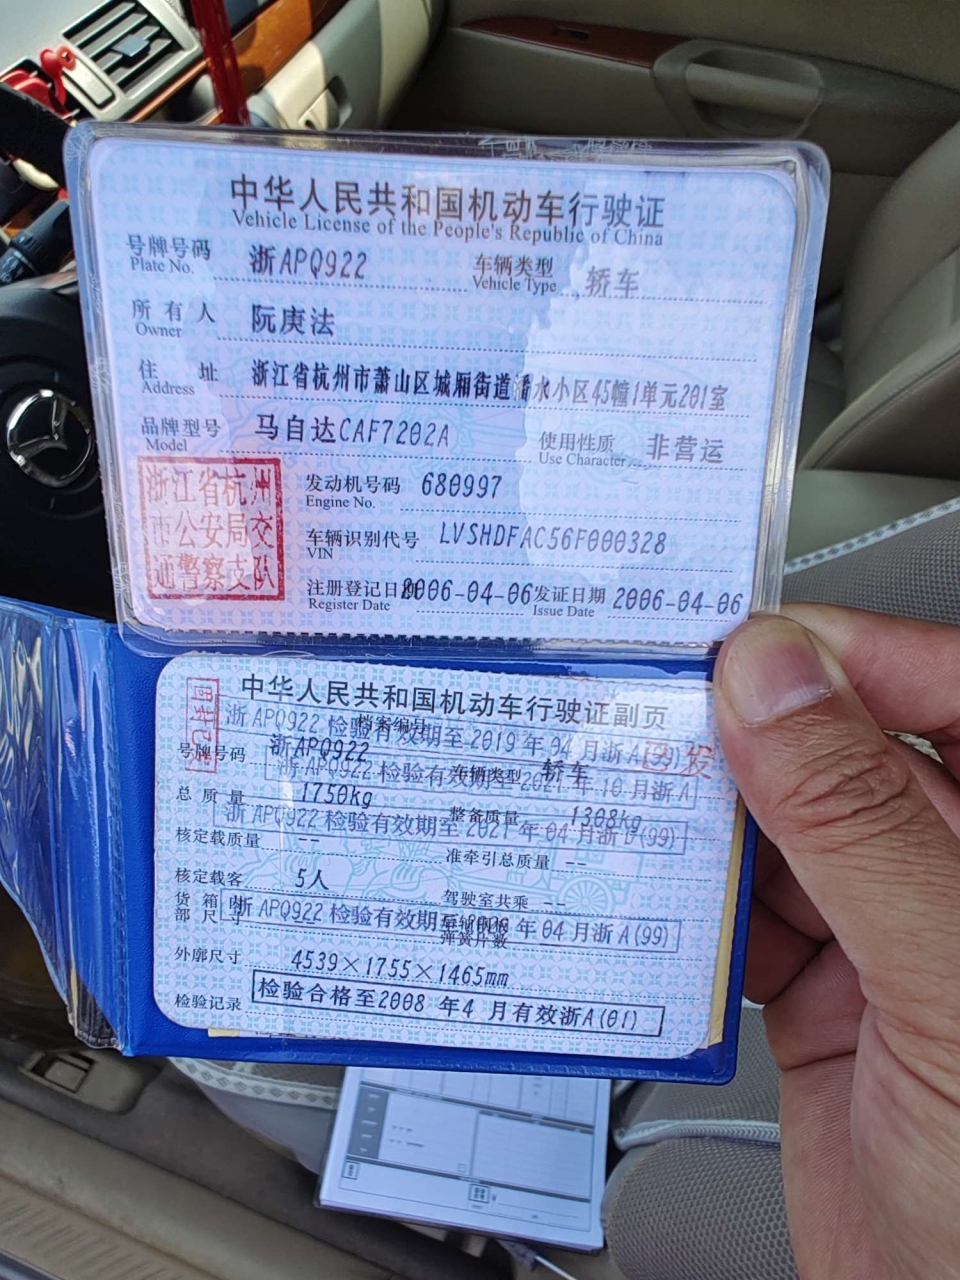 中华人民共和国机动车行驶证
Vehicle License of the People's Republic of China
号牌号码 浙APQ922 车辆类型 轿车
Plate No. Vehicle Type
所有人 阮庚法
Owner
住址 浙江省杭州市萧山区城厢街道潘水小区45幢1单元201室
Address
品牌型号 马自达CAF7202A 使用性质 非营运
Model Use Character
浙江省杭州
市公安局交
通警察支队
发动机号码 680997
Engine No.
车辆识别代号 LVSHDFAC56F000328
VIN
注册登记日期 2006-04-06 发证日期 2006-04-06
Register Date Issue Date
中华人民共和国机动车行驶证副页
档案编号
浙APQ922 检验有效期至2019年04月浙A(99)
号牌号码 浙APQ922 车辆类型 轿车
浙APQ922 检验有效期至2021年10月浙A
总质量 1750kg 整备质量 1308kg
浙APQ922 检验有效期至2021年04月浙B(99)
核定载质量 -- 准牵引总质量 --
核定载客 5人 驾驶室共乘 --
货箱内部尺寸
弹簧片数
浙APQ922 检验有效期至 年04月浙A(99)
外廓尺寸 4539×1755×1465mm
检验记录 检验合格至2008年4月有效浙A(01)